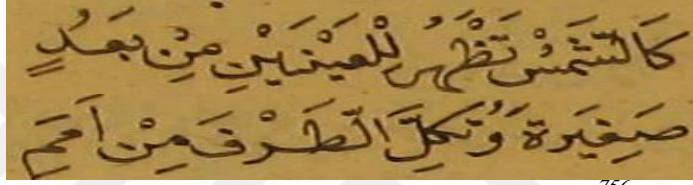 كَالشَّمْسِ تَظْهَرُ لِلْعَيْنَيْنِ مِنْ بَعُدٍ
صَغِيرَة وَتُكِلُّ الطَّرْفَ مِنْ اَمَمِ
756